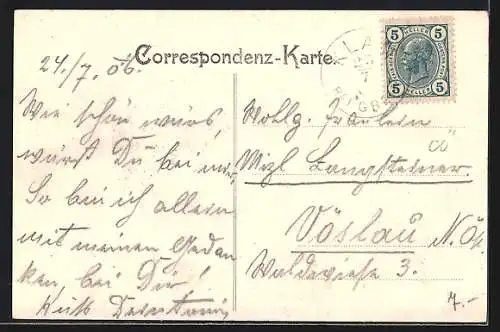 24./7. 06.
Correspondenz-Karte.
5 HELLER 5
5 HELLER 5
KLA
Wie schön wärs,
wärst Du bei mir,
So bin ich allein
mit meinen Gedan
ken, bei Dir!
Kuss
Wohlg. Fräulein
Mizl Langsteiner
Vöslau N.Ö.
Waldwiese 3.
7.-